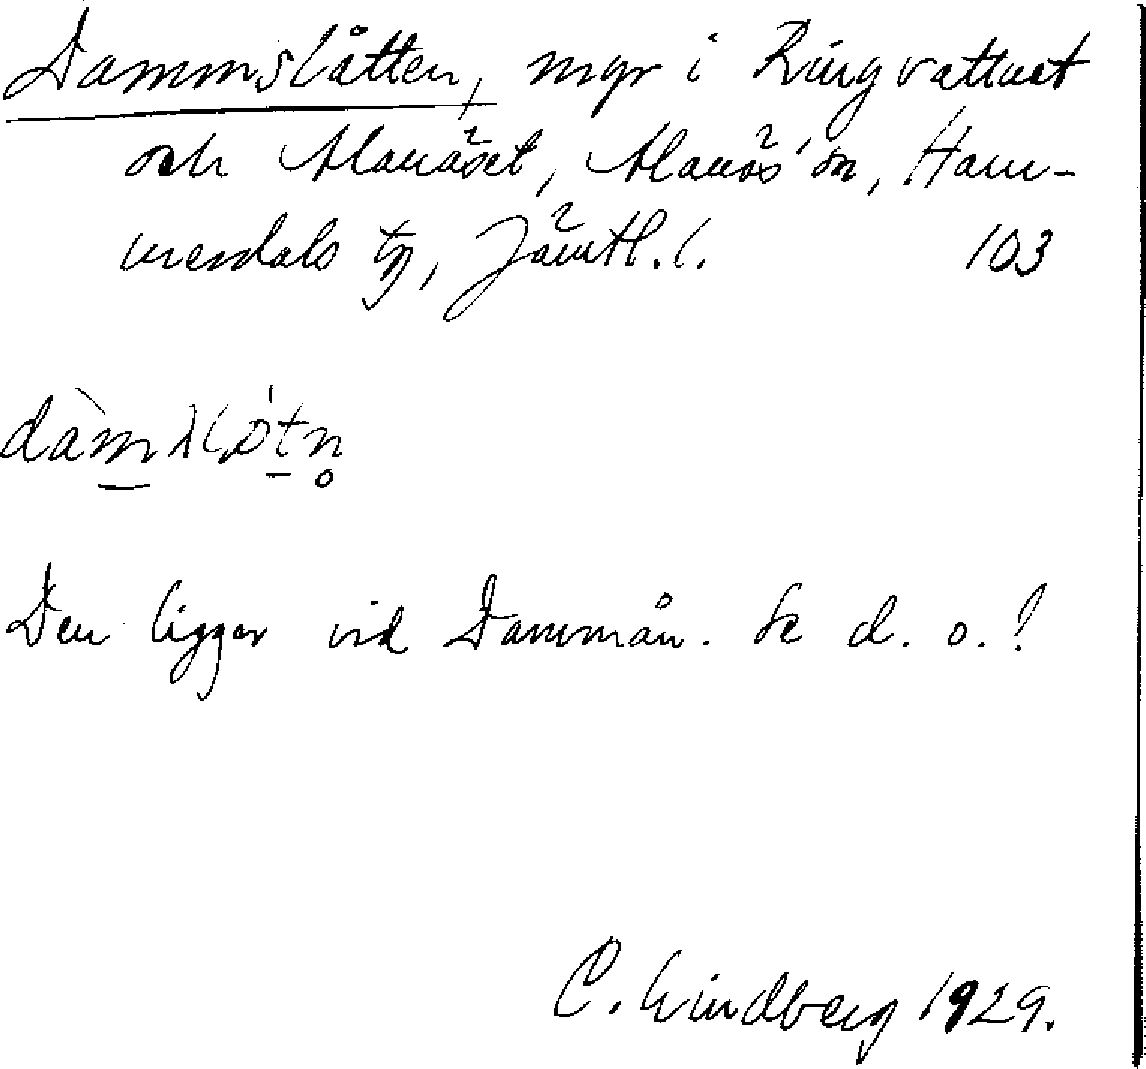 Dammslåtten, mgr i Ringvattnet
och Alanäset, Alanäs' sn, Ham-
merdals tg, Jämtl. l. 103
Den ligger vid Dammån. Se d. o.!
C. Lindberg 1929.